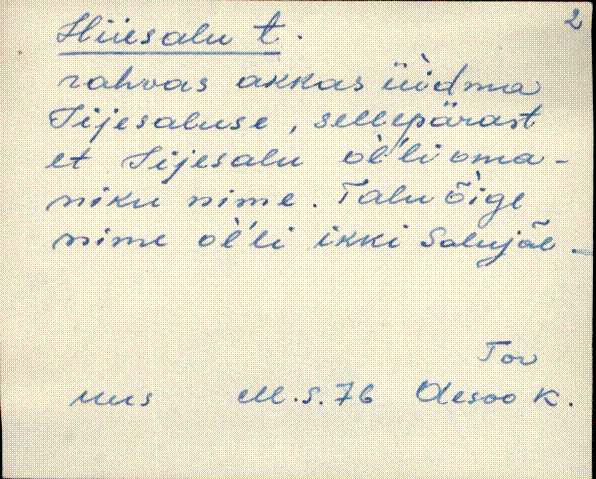 2
Hiiesalu t.
rahvas akkas üìdma
Iijesaluse, sellepärast
et Iijesalu òĺli oma-
niku nime. Talu õìge
nime òĺli ikki Salujäe.
Tor
uus M.S.76 Aesoo k.